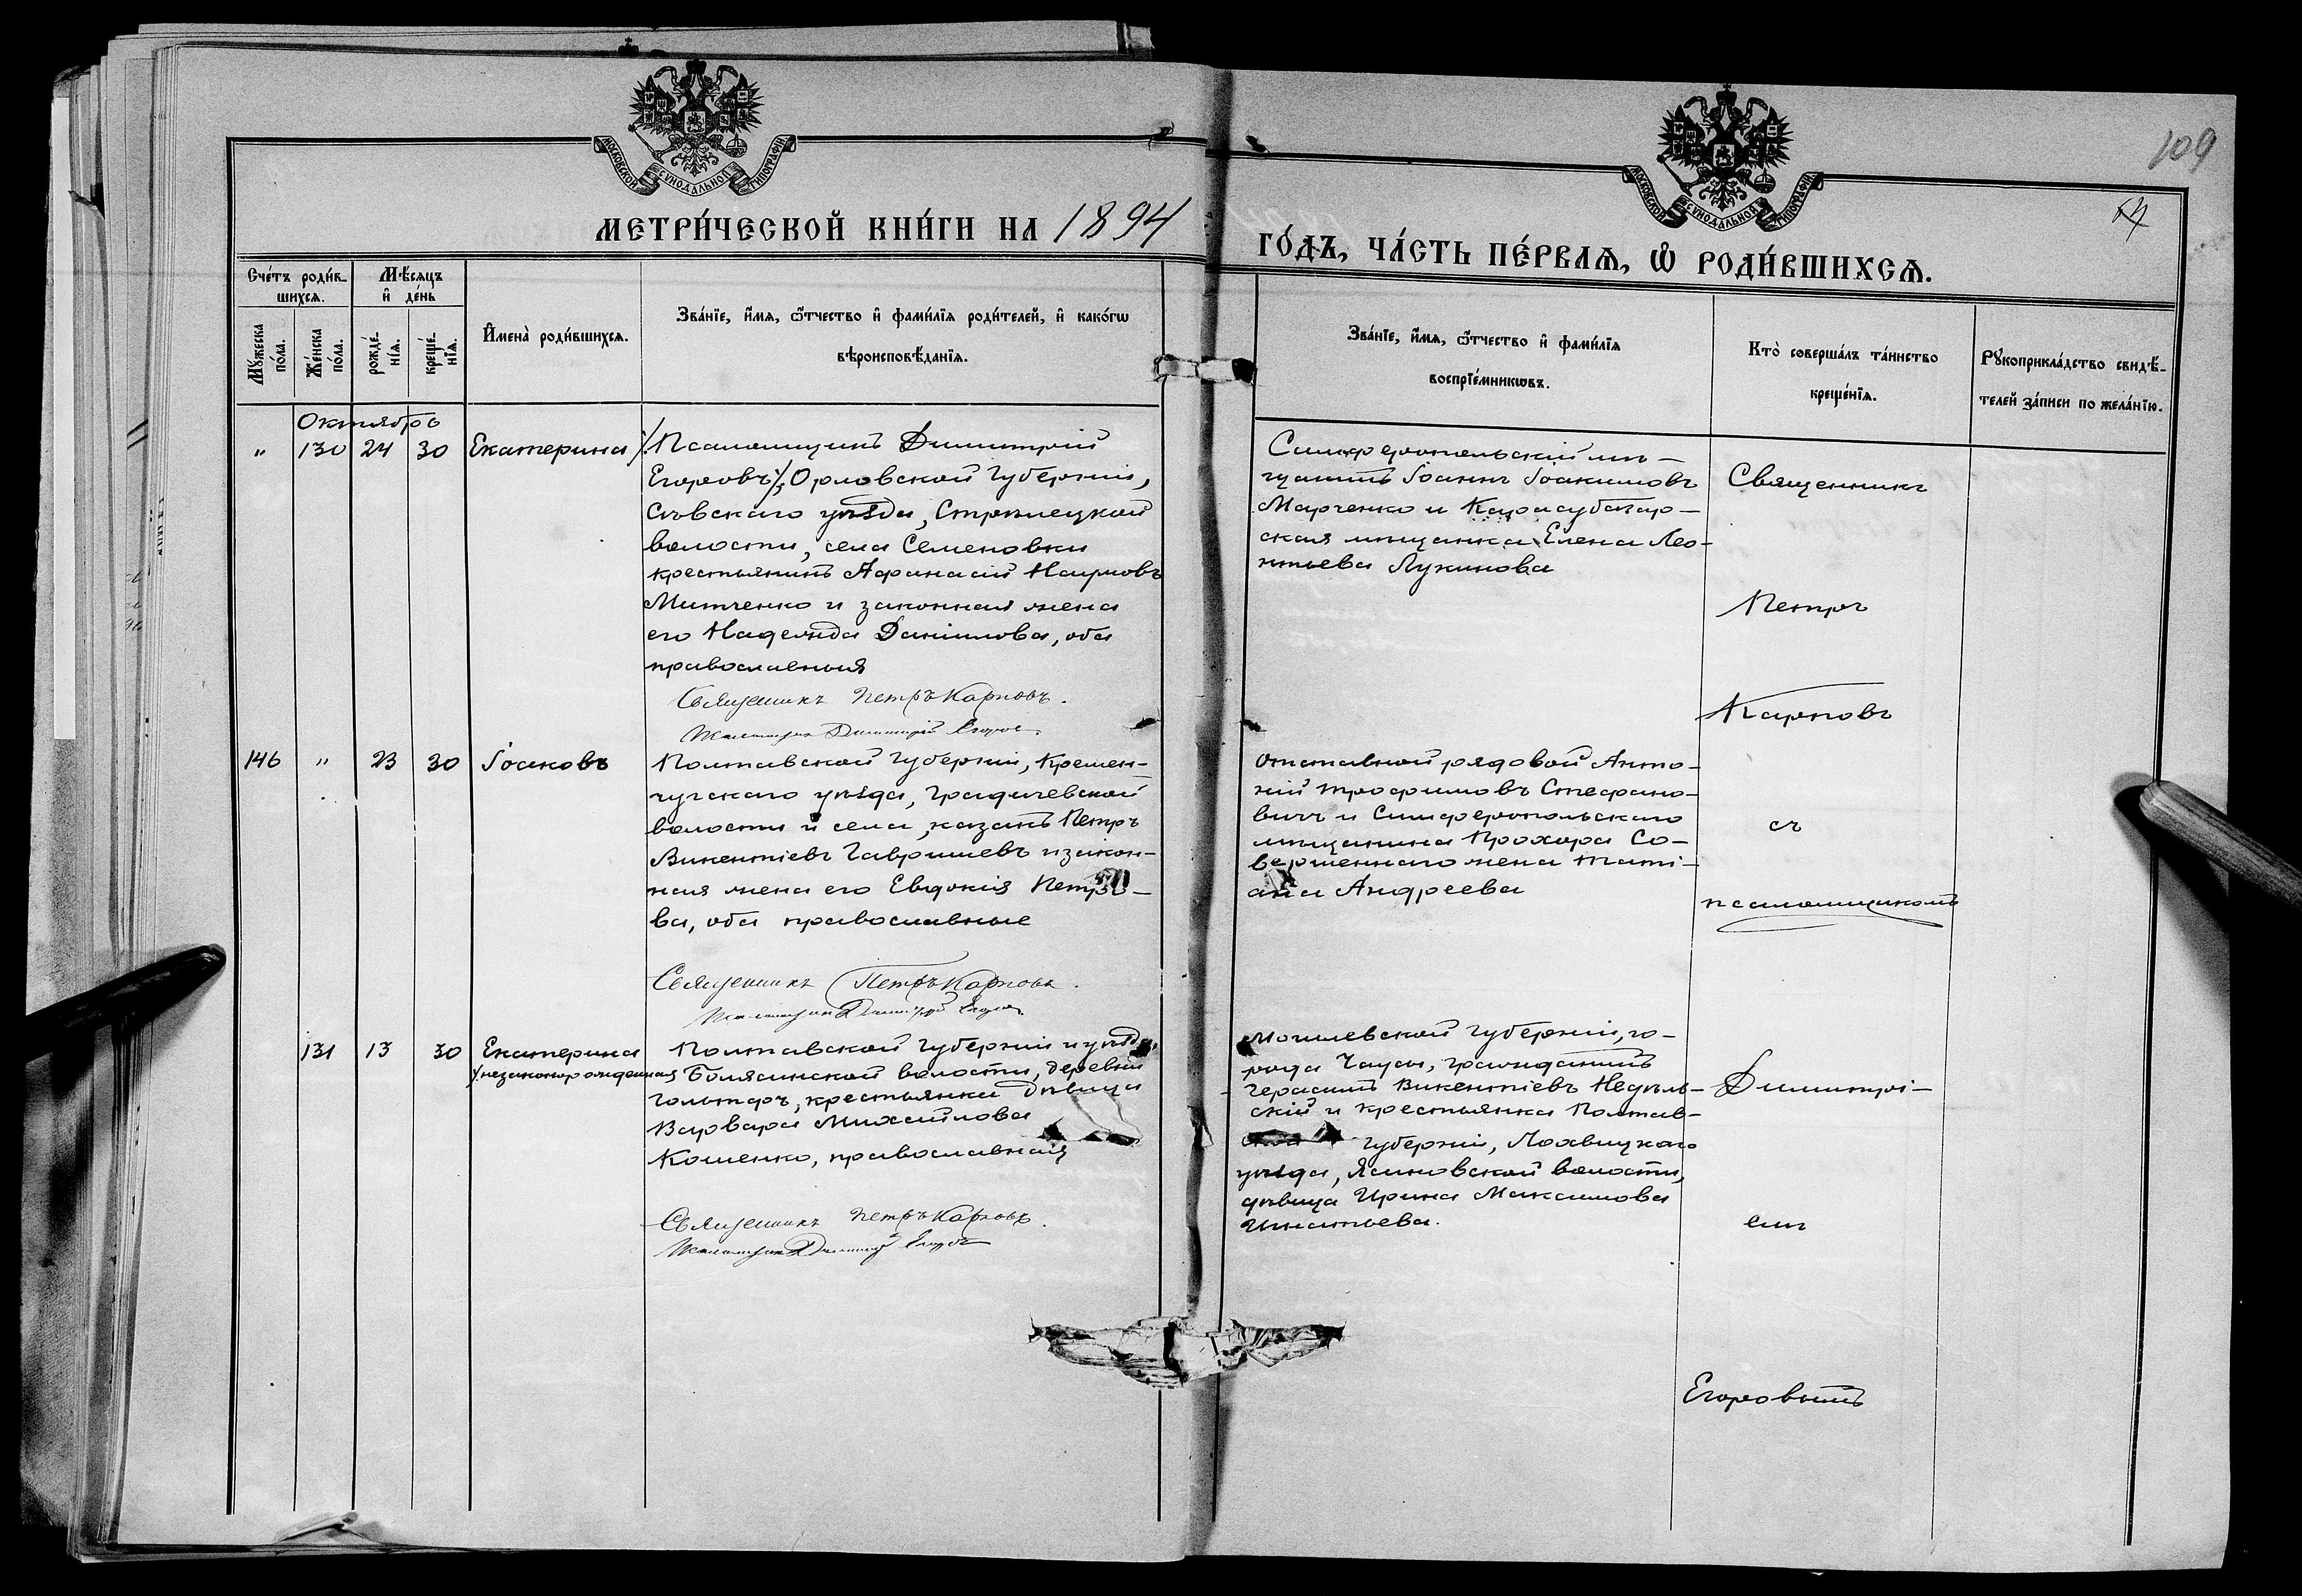 109
64
МОСКОВСКОЙ СѴНОДАЛЬНОЙ ТИПОГРАФІИ
МОСКОВСКОЙ СѴНОДАЛЬНОЙ ТИПОГРАФІИ
МЕТРИ́ЧЕСКОЙ КНИ́ГИ НА 1894
ГО́ДЪ, ЧА́СТЬ ПЕ́РВАѦ, Ѡ҆ РОДИ́ВШИХСѦ.
Сче́тъ роди́в-
шихсѧ.
Мѣ́сѧцъ
и҆ де́нь
Мꙋ́жеска
по́ла.
Же́нска
по́ла.
рожде́-
нїѧ.
креще́-
нїѧ.
И҆мена̀ роди́вшихсѧ.
Зва́нїе, и҆́мѧ, ѻ҆́тчество и҆ фами́лїѧ роди́телей, и҆ како́гѡ
вѣроисповѣ́данїѧ.
Зва́нїе, и҆́мѧ, ѻ҆́тчество и҆ фами́лїѧ
воспрїе́мникѡвъ.
Кто̀ соверша́лъ та́инство
креще́нїѧ.
Рꙋкоприкла́дство свидѣ́-
телей за́писи по жела́нїю.
Октябрь
" 130 24 30 Екатерина
Псаломщикъ Димитрій
Егоровъ, Орловской Губерніи,
Сѣвскаго уѣзда, Стрѣлецкой
волости, села Семеновки
крестьянинъ Афанасій Наумовъ
Митченко и законная жена
его Надежда Даніилова, оба
православныя
Священникъ Петръ Карповъ.
Псаломщикъ Димитрій Егоровъ
Симферопольскій мѣ-
щанинъ Іоаннъ Іоакимовъ
Марченко и Карасубазар-
ская мѣщанка Елена Лео-
нтьева Лукинова
Священникъ
Петръ
Карповъ
146 " 23 30 Іаковъ
Полтавской Губерніи, Кремен-
чугскаго уѣзда, Градижской
волости и села, казакъ Петръ
Викентіевъ Гавришевъ и закон-
ная жена его Евдокія Петро-
ва, оба православные
Священникъ Петръ Карповъ.
Псаломщикъ Димитрій Егоровъ
Отставной рядовой Анто-
ній Трофимовъ Стефано-
вичъ и Симферопольскаго
мѣщанина Прохора Со-
вершеннаго жена Таті-
ана Андреева
съ
псаломщикомъ
131 13 30 Екатерина
незаконорожденная
Полтавской Губерніи и уѣзда,
волости, деревни
крестьянка дѣвица
Варвара Михайлова
Коменко, православная
Священникъ Петръ Карповъ.
Псаломщикъ Димитрій Егоровъ
Могилевской Губерніи, го-
рода Чаусы, гражданинъ
Герасимъ Викентіевъ Недѣль-
скій и крестьянка Полтав-
Губерніи, Лохвицкаго
уѣзда, Ясиновской волости,
дѣвица Ирина Максимова
Игнатьева.
Димитрі-
емъ
Егоровымъ